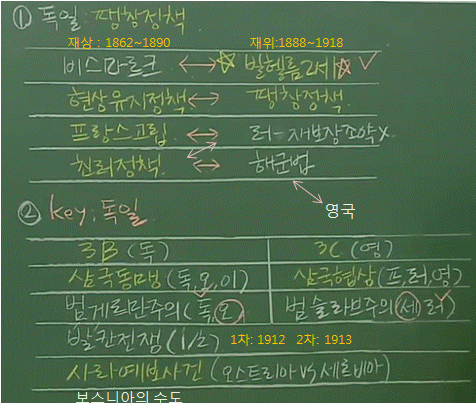 ① 독일: 팽창정책
재상 : 1862~1890 재위:1888~1918
비스마르크 ↔ ☆ 빌헬름2세 ☆ ✓
현상유지정책 ↔ 팽창정책.
프랑스고립 ↔ 러-재보장조약x
친러정책. ↔ 해군법
영국
② Key: 독일
3B (독) 3C (영)
삼국동맹 (독,오,이) 삼국협상 (프,러,영)
범게르만주의 (독,오) 범슬라브주의 (세,러)
발칸전쟁 (1/2) 1차: 1912 2차: 1913
사라예보사건 (오스트리아 VS 세르비아)
보스니아의 수도